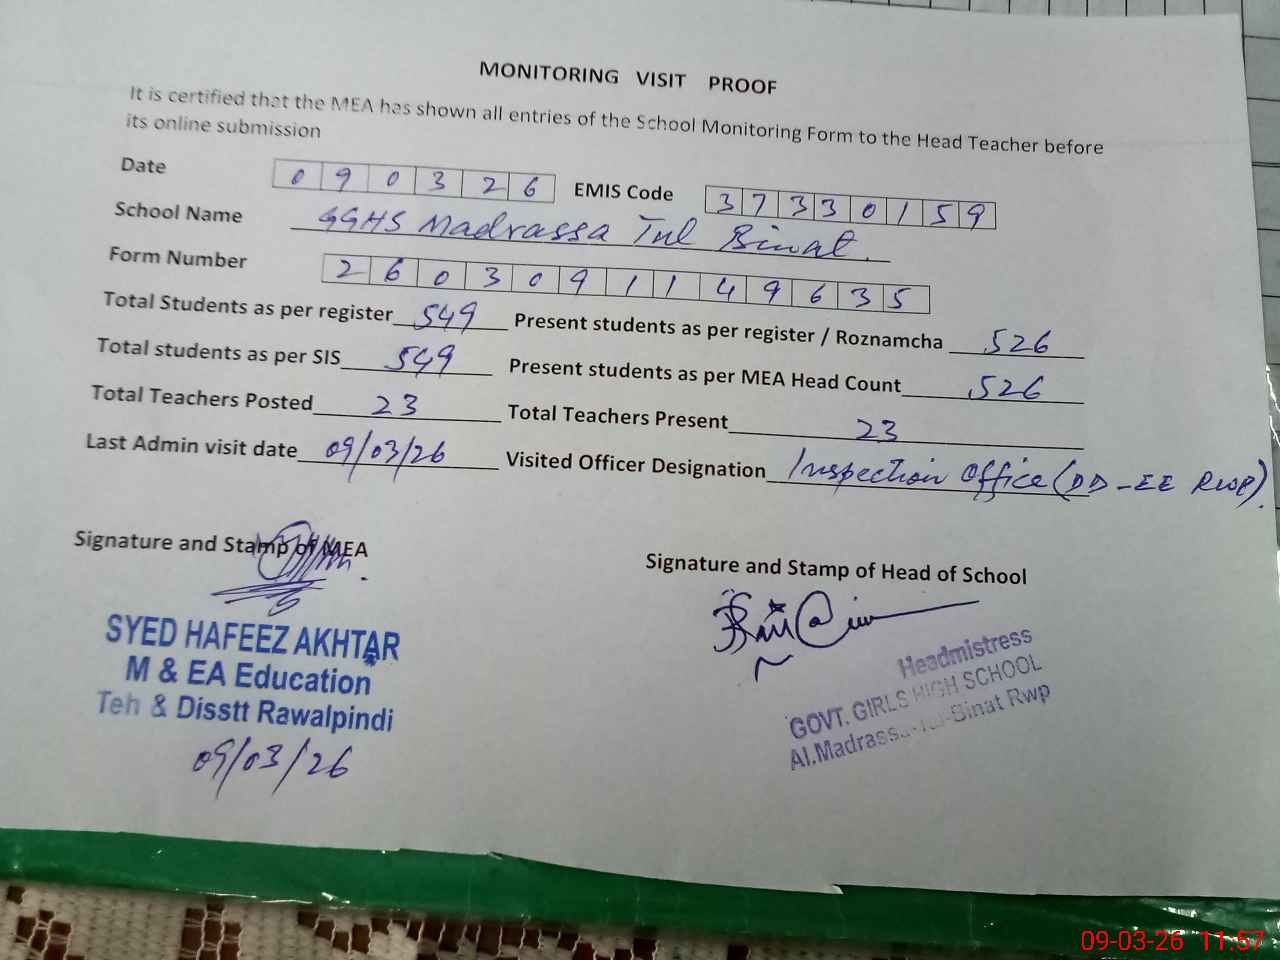 MONITORING VISIT PROOF
It is certified that the MEA has shown all entries of the School Monitoring Form to the Head Teacher before
its online submission
Date 090326 EMIS Code 37330159
School Name GGHS Madrassa Tul Binat.
Form Number 2603091149635
Total Students as per register 549 Present students as per register / Roznamcha 526
Total students as per SIS 549 Present students as per MEA Head Count 526
Total Teachers Posted 23 Total Teachers Present 23
Last Admin visit date 09/03/26 Visited Officer Designation Inspection Office (DD-EE RWP).
Signature and Stamp of MEA Signature and Stamp of Head of School
SYED HAFEEZ AKHTAR
M & EA Education
Teh & Disstt Rawalpindi
09/03/26
Headmistress
GOVT. GIRLS HIGH SCHOOL
Al.Madrassa-Tul-Binat Rwp
09-03-26 11:57